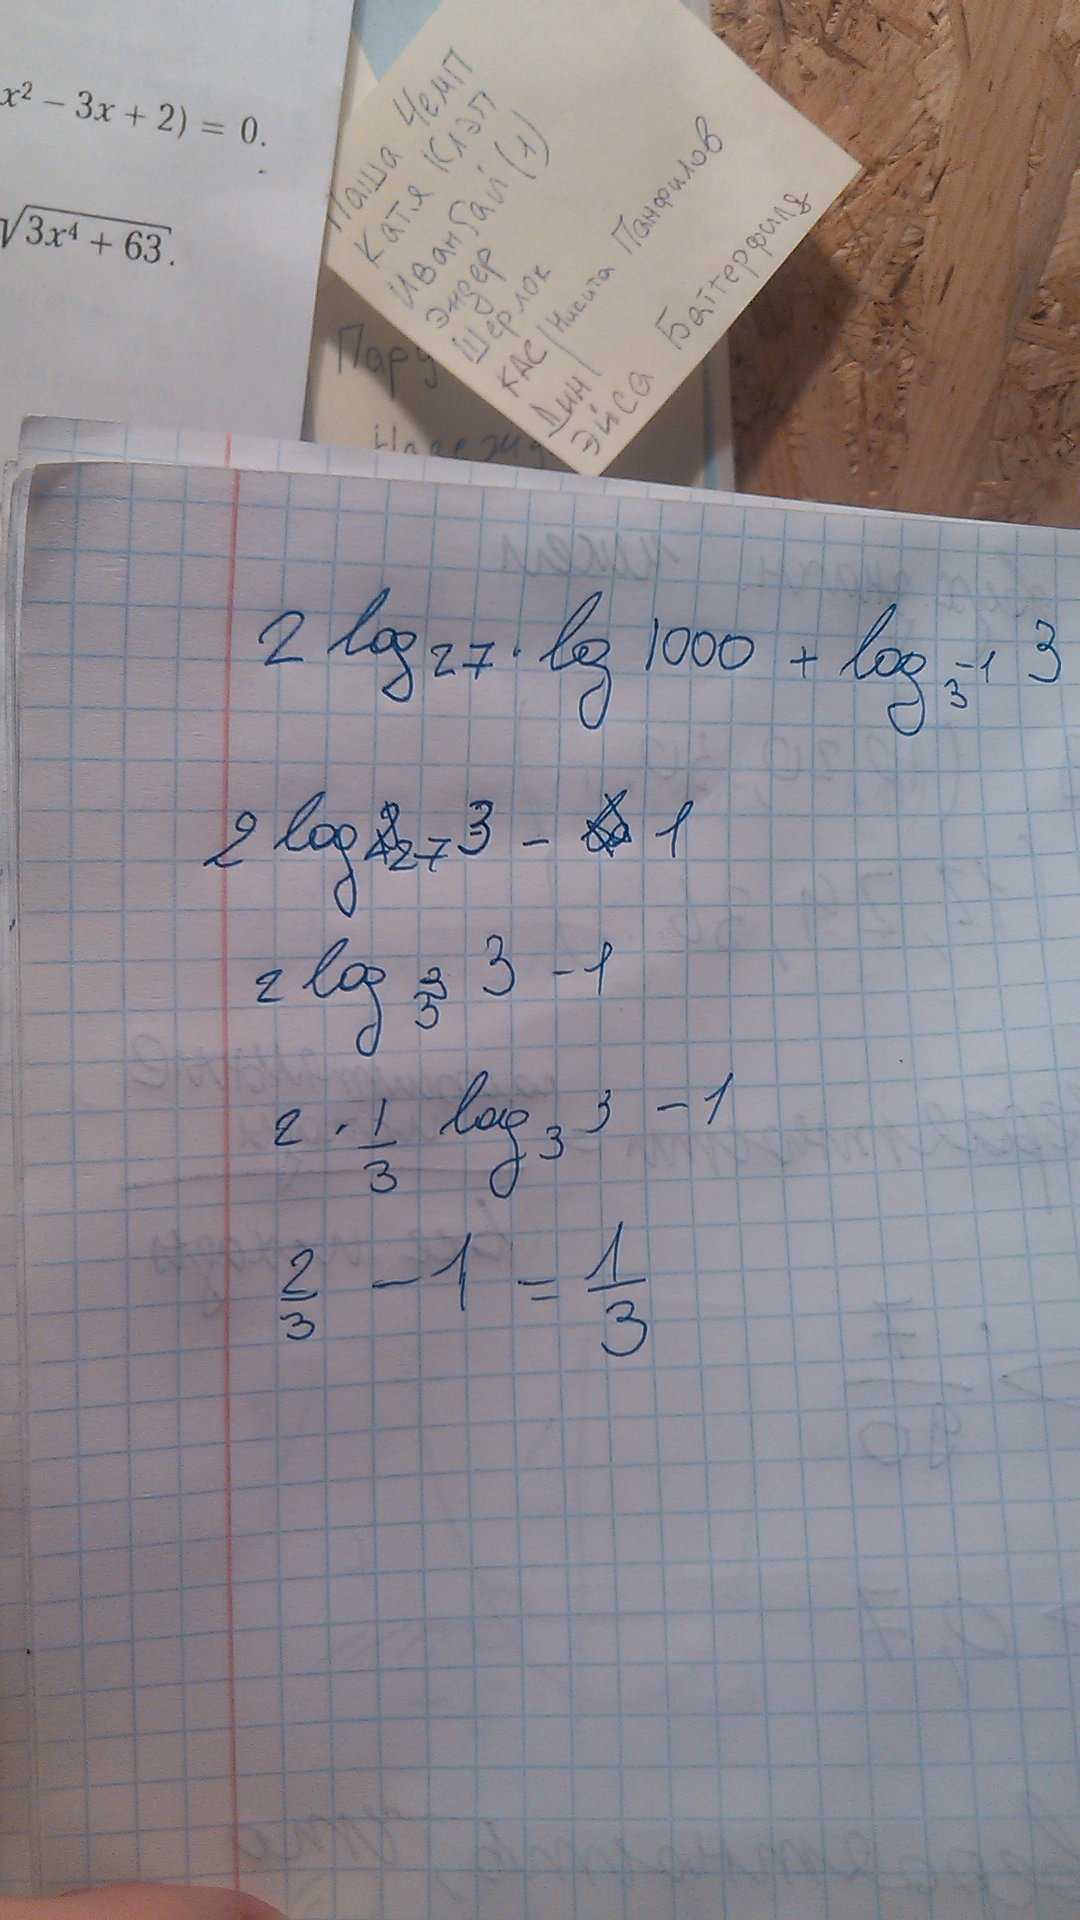 x² − 3x + 2) = 0.
√3x⁴ + 63.
Паша Чемп
Катя Клэп
Ивангай (1)
Энзер
Шерлок
КАС | Никита Панфилов
Дин |
Эйса Баттерфилд
Пару
2 log₂₇ · lg 1000 + log₃⁻¹ 3
2 log₂₇ 3 − 1
2 log₃³ 3 − 1
2 · 1/3 log₃ 3 − 1
2/3 − 1 = 1/3